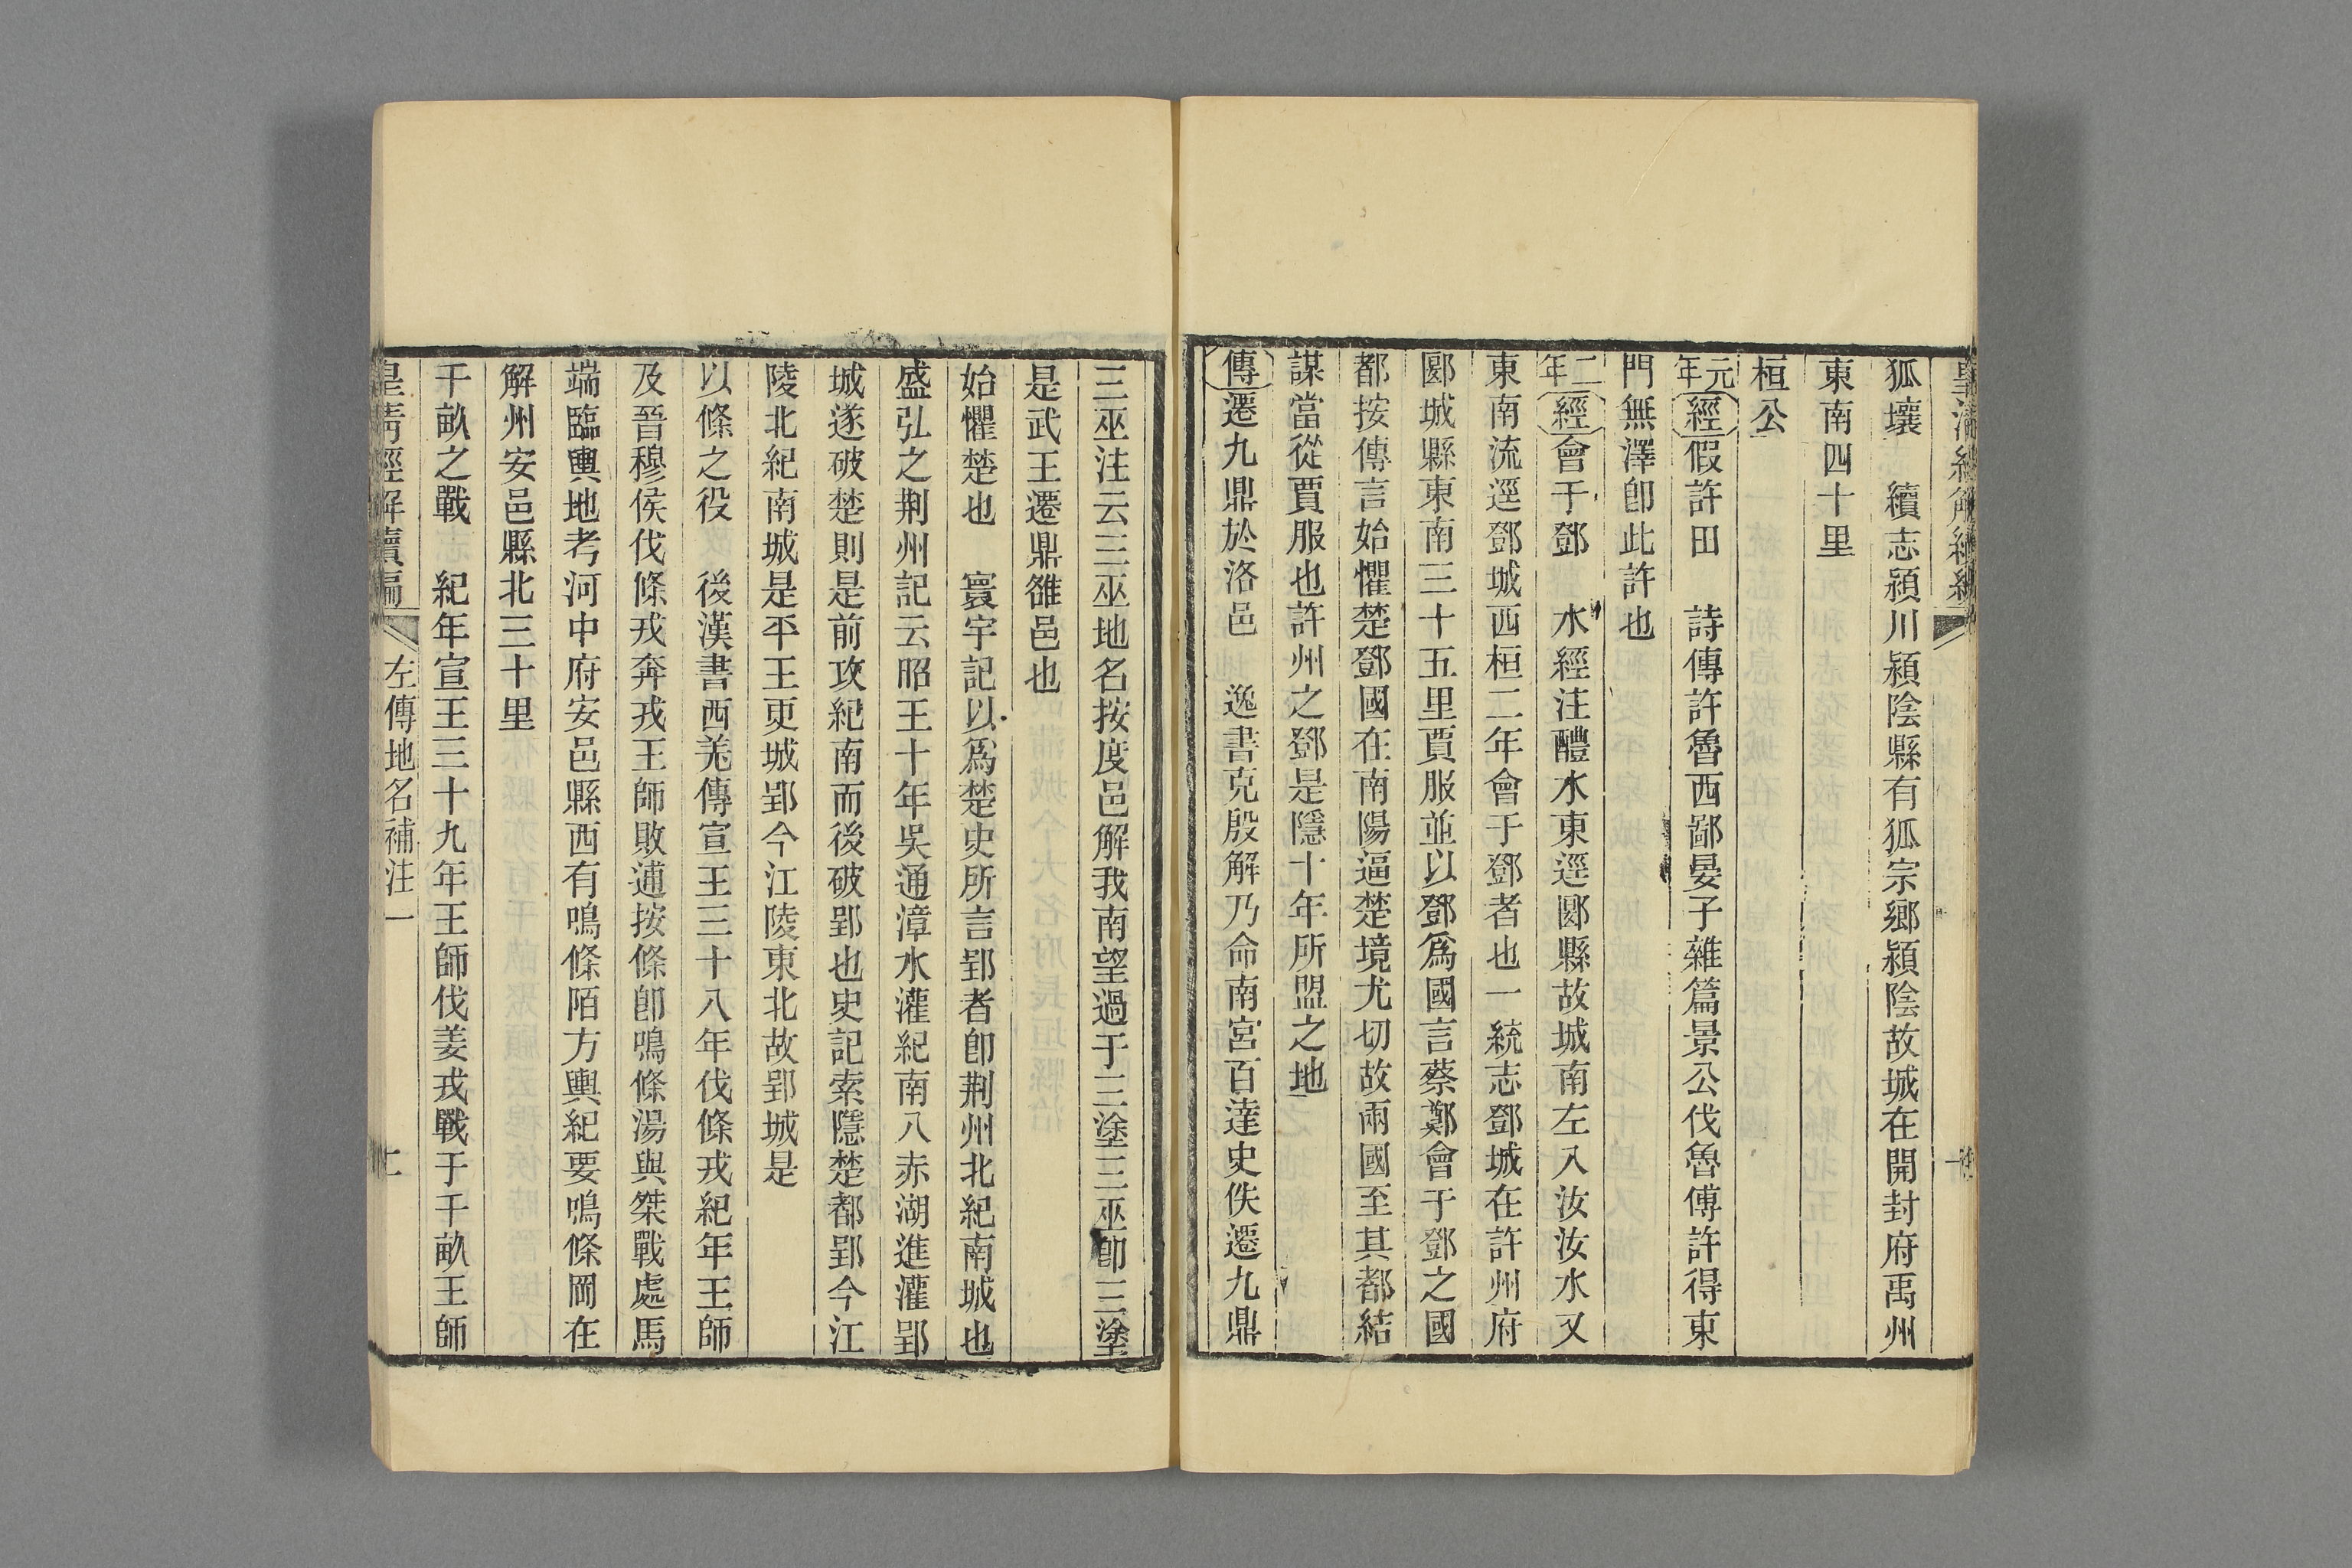 狐壤　續志潁川潁陰縣有狐宗鄉潁陰故城在開封府禹州
東南四十里
桓公
元年經假許田　詩傳許魯西鄙晏子雜篇景公伐魯傅許得東
門無澤卽此許也
二年經會于鄧　水經注醴水東逕郾縣故城南左入汝汝水又
東南流逕鄧城西桓二年會于鄧者也一統志鄧城在許州府
郾城縣東南三十五里賈服並以鄧爲國言蔡鄭會于鄧之國
都按傳言始懼楚鄧國在南陽逼楚境尤切故兩國至其都結
謀當從賈服也許州之鄧是隱十年所盟之地
傳遷九鼎於洛邑　逸書克殷解乃命南宮百達史佚遷九鼎
三巫注云三巫地名按度邑解我南望過于三塗三巫卽三塗
是武王遷鼎雒邑也
始懼楚也　寰宇記以爲楚史所言郢者卽荆州北紀南城也
盛弘之荆州記云昭王十年吳通漳水灌紀南入赤湖進灌郢
城遂破楚則是前攻紀南而後破郢也史記索隱楚都郢今江
陵北紀南城是平王更城郢今江陵東北故郢城是
以條之役　後漢書西羌傳宣王三十八年伐條戎紀年王師
及晉穆侯伐條戎奔戎王師敗逋按條卽鳴條湯與桀戰處馬
端臨輿地考河中府安邑縣西有鳴條陌方輿紀要鳴條岡在
解州安邑縣北三十里
千畝之戰　紀年宣王三十九年王師伐姜戎戰于千畝王師
皇淸經解續編　左傳地名補注一